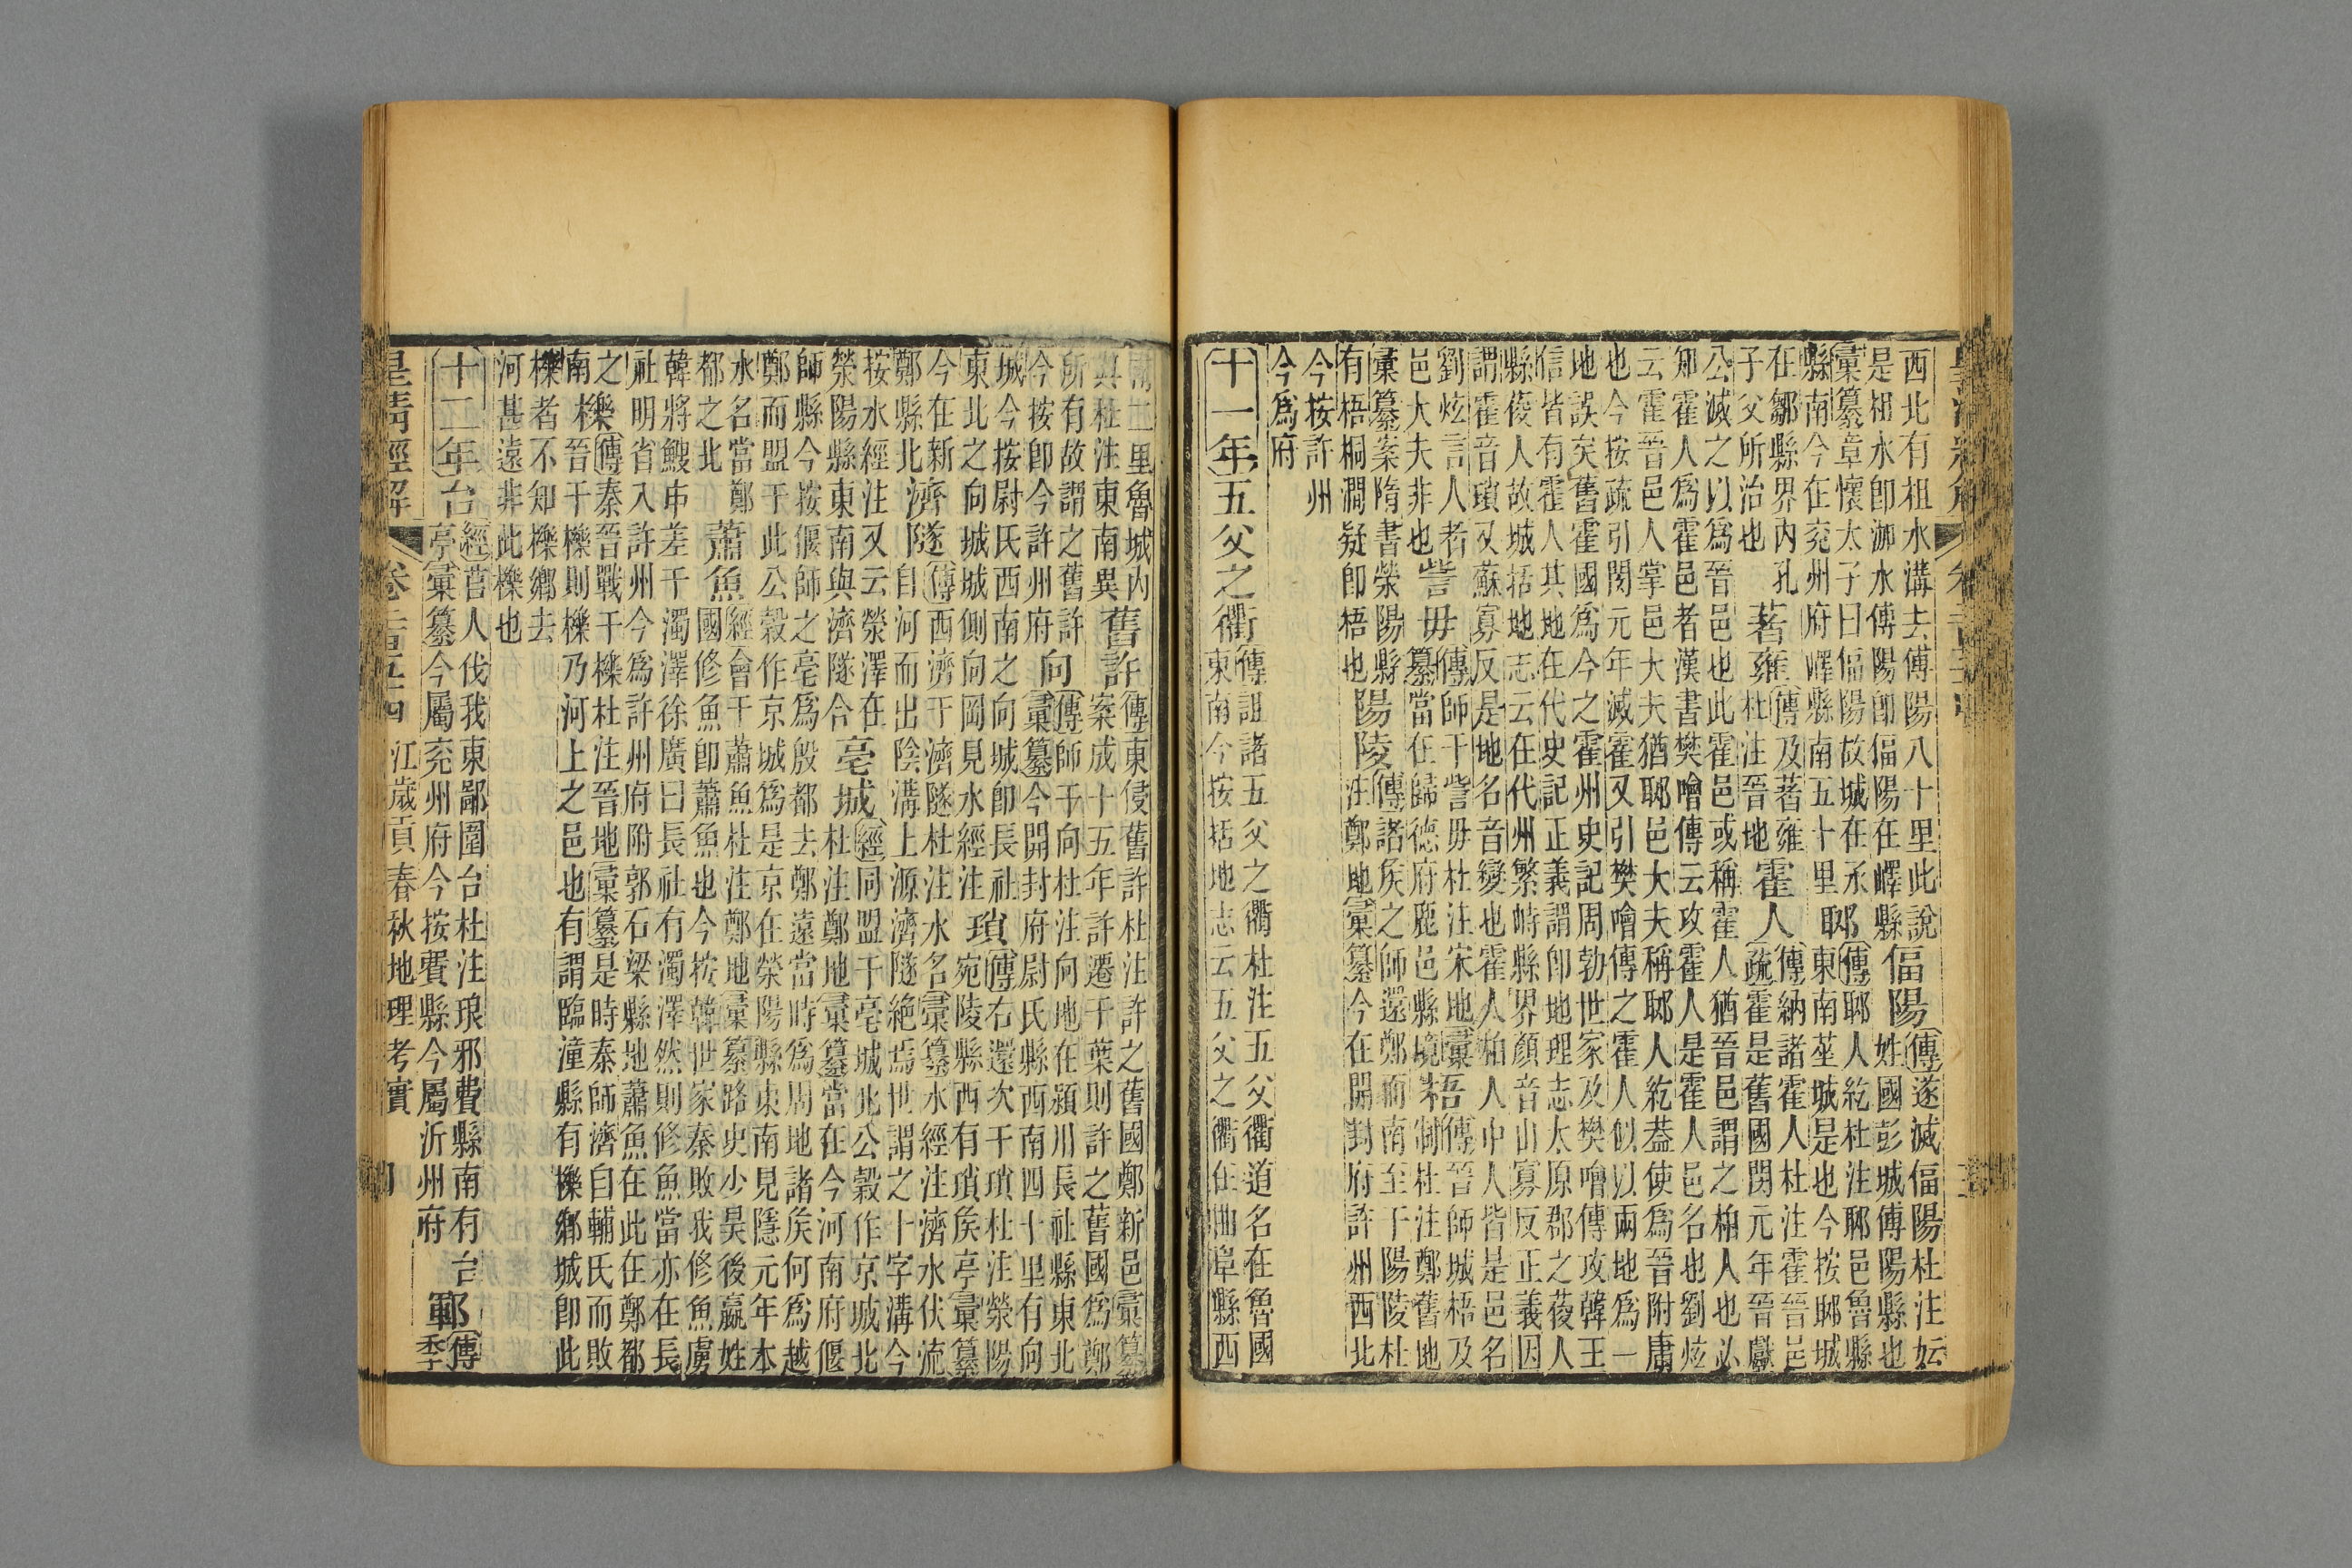 西北有柤水溝去傅陽八十里此說
是柤水卽泇水傅陽卽偪陽在嶧縣
偪陽
傳遂滅偪陽杜注妘
姓國彭城傅陽縣也
彙纂章懷太子曰偪陽故城在承
縣南今在兖州府嶧縣南五十里
郰
傳郰人紇杜注郰邑魯縣
東南莝城是也今按郰城
在鄒縣界内孔
子父所治也
著雍
傳及著雍
杜注晉地
霍人
傳納諸霍人杜注霍晉邑
疏霍是舊國閔元年晉獻
公滅之以爲晉邑也此霍邑或稱霍人猶晉邑謂之柏人也必
知霍人爲霍邑者漢書樊噲傳云攻霍人是霍人邑名也劉炫
云霍晉邑人掌邑大夫猶郰邑大夫稱郰人紇葢使爲晉附庸
也今按疏引閔元年滅霍又引樊噲傳之霍人似以兩地爲一
地誤矣舊霍國爲今之霍州史記周勃世家及樊噲傳攻韓王
信皆有霍人其地在代史記正義謂卽地理志太原郡之葰人
縣葰人故城括地志云在代州繁峙縣界顏音山寡反正義因
謂霍音瑣又蘇寡反是地名音變也霍人柏人中人皆是邑名
劉炫言人者
邑大夫非也
訾毋
傳師于訾毋杜注宋地彙
纂當在歸德府鹿邑縣境
梧
傳晉師城梧及
制杜注鄭舊地
彙纂案隋書榮陽縣
有梧桐澗疑卽梧也
陽陵
傳諸矦之師還鄭而南至于陽陵杜
注鄭地彙纂今在開封府許州西北
今按許州
今爲府
十一年
五父之衢
傳詛諸五父之衢杜注五父衢道名在魯國
東南今按括地志云五父之衢在曲阜縣西
南二里魯城内
與杜注東南異
舊許
傳東侵舊許杜注許之舊國鄭新邑彙纂
案成十五年許遷于葉則許之舊國爲鄭
所有故謂之舊許
今按卽今許州府
向
傳師于向杜注向地在潁川長社縣東北
彙纂今開封府尉氏縣西南四十里有向
城今按尉氏西南之向城卽長社
東北之向城城側向岡見水經注
瑣
傳右還次于瑣杜注榮陽
宛陵縣西有瑣矦亭彙纂
今在新
鄭縣北
濟隧
傳西濟于濟隧杜注水名彙纂水經注濟水伏流
自河而出陰溝上源濟隧絶焉世謂之十字溝今
按水經注又云滎澤在
榮陽縣東南與濟隧合
亳城
經同盟于亳城北公榖作京城北
杜注鄭地彙纂當在今河南府偃
師縣今按偃師之亳爲殷都去鄭遠當時爲周地諸矦何爲越
鄭而盟于此公榖作京城爲是京在榮陽縣東南見隱元年本
水名當鄭
都之北
蕭魚
經會于蕭魚杜注鄭地彙纂路史少昊後嬴姓
國修魚卽蕭魚也今按韓世家秦敗我修魚虜
韓將鰒申差于濁澤徐廣曰長社有濁澤然則修魚當亦在長
社明省入許州今爲許州府附郭石梁縣地蕭魚在此在鄭都
之
南
櫟
傳秦晉戰于櫟杜注晉地彙纂是時秦師濟自輔氏而敗
晉于櫟則櫟乃河上之邑也有謂臨潼縣有櫟鄉城卽此
櫟者不知櫟鄉去
河甚遠非此櫟也
十二年
台
經莒人伐我東鄙圍台杜注琅邪費縣南有台
亭彙纂今屬兖州府今按費縣今屬沂州府
鄆
傳
季
皇清經解 卷二百五十四 江歲貢春秋地理考實